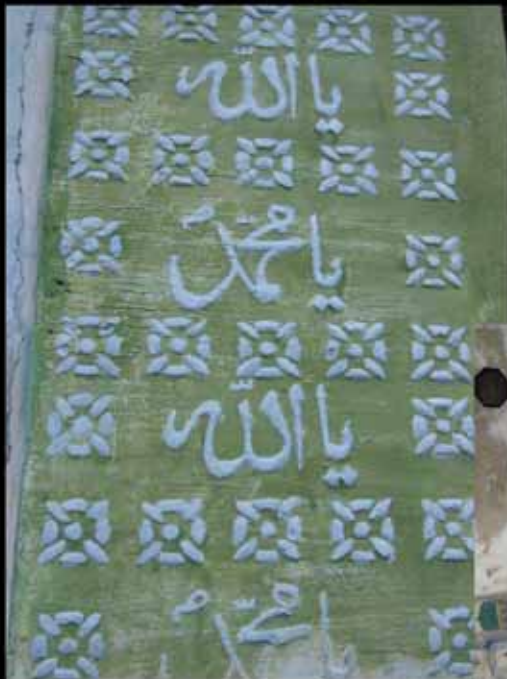 يا الله
يا محمد
يا الله
يا محمد